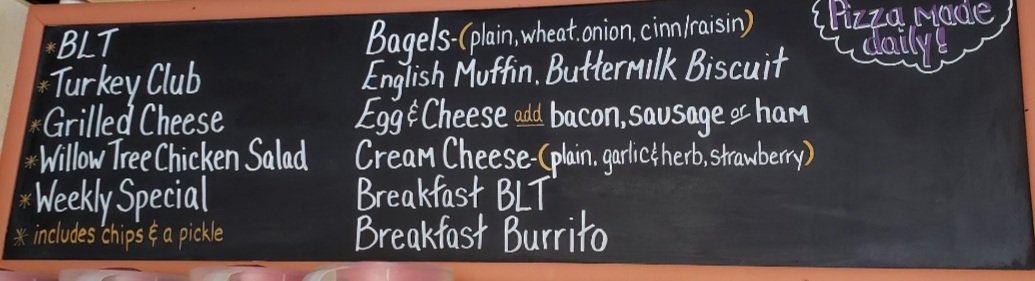 *BLT
*Turkey Club
*Grilled Cheese
*Willow Tree Chicken Salad
*Weekly Special
* includes chips & a pickle
Bagels-(plain, wheat. onion, cinn/raisin)
English Muffin. Buttermilk Biscuit
Egg & Cheese add bacon, sausage or ham
Cream Cheese-(plain. garlic & herb, strawberry)
Breakfast BLT
Breakfast Burrito
Pizza made
daily!